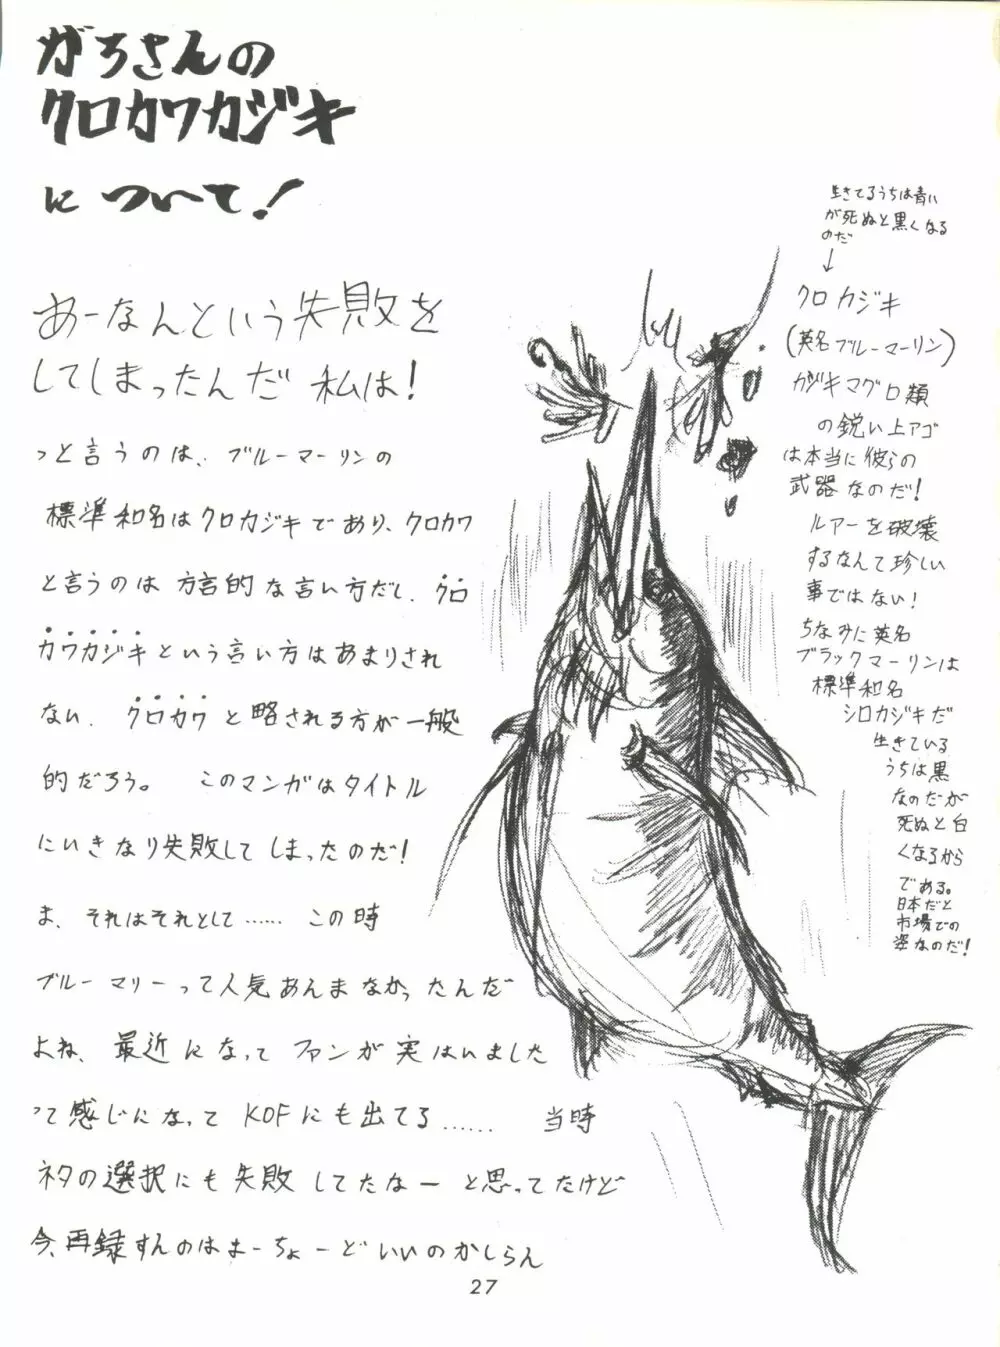 がちさんの
クロカワカジキ
について！
あーなんという失敗を
してしまったんだ 私は！
っと言うのは、ブルーマーリンの
標準和名はクロカジキであり、クロカワ
と言うのは 方言的な言い方だし、クロ
カワカジキという言い方はあまりされ
ない、クロカワと略される方が一般
的だろう。 このマンガはタイトル
にいきなり失敗してしまったのだ！
ま、それはそれとして…… この時
ブルーマリーって人気あんまなかったんだ
よね、最近になってファンが実はいました
って感じになって KOFにも出てる…… 当時
ネタの選択にも失敗してたなーと思ってたけど
今、再録すんのはまーちょーどいいのかしらん
生きてるうちは青い
が死ぬと黒くなる
のだ
↓
クロカジキ
(英名ブルーマーリン)
カジキマグロ類
の鋭い上アゴ
は本当に彼らの
武器なのだ！
ルアーを破壊
するなんて珍しい
事ではない！
ちなみに英名
ブラックマーリンは
標準和名
シロカジキだ
生きている
うちは黒
なのだが
死ぬと白
くなるから
である。
日本だと
市場での
姿なのだ！
27